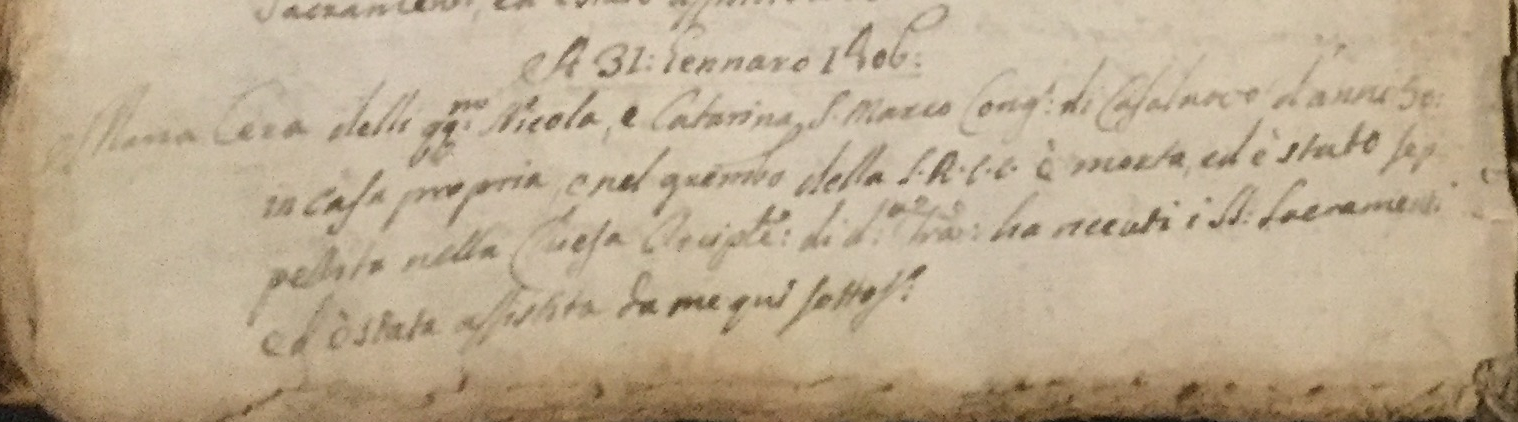 Sacramenti, ed è stato assistito
A 31: Gennaro 1806:
Maria Cera delli qq.m Nicola, e Catarina S. Marco Cong.i di Casalnovo d'anni 50:
in casa propria, e nel grembo della S. R. C. C. è morta, ed è stata sep
pellita nella Chiesa Arciple: di d.a Trã: ha riceuti i SS: Sacramenti
ed è stata assistita da me qui sottos.o